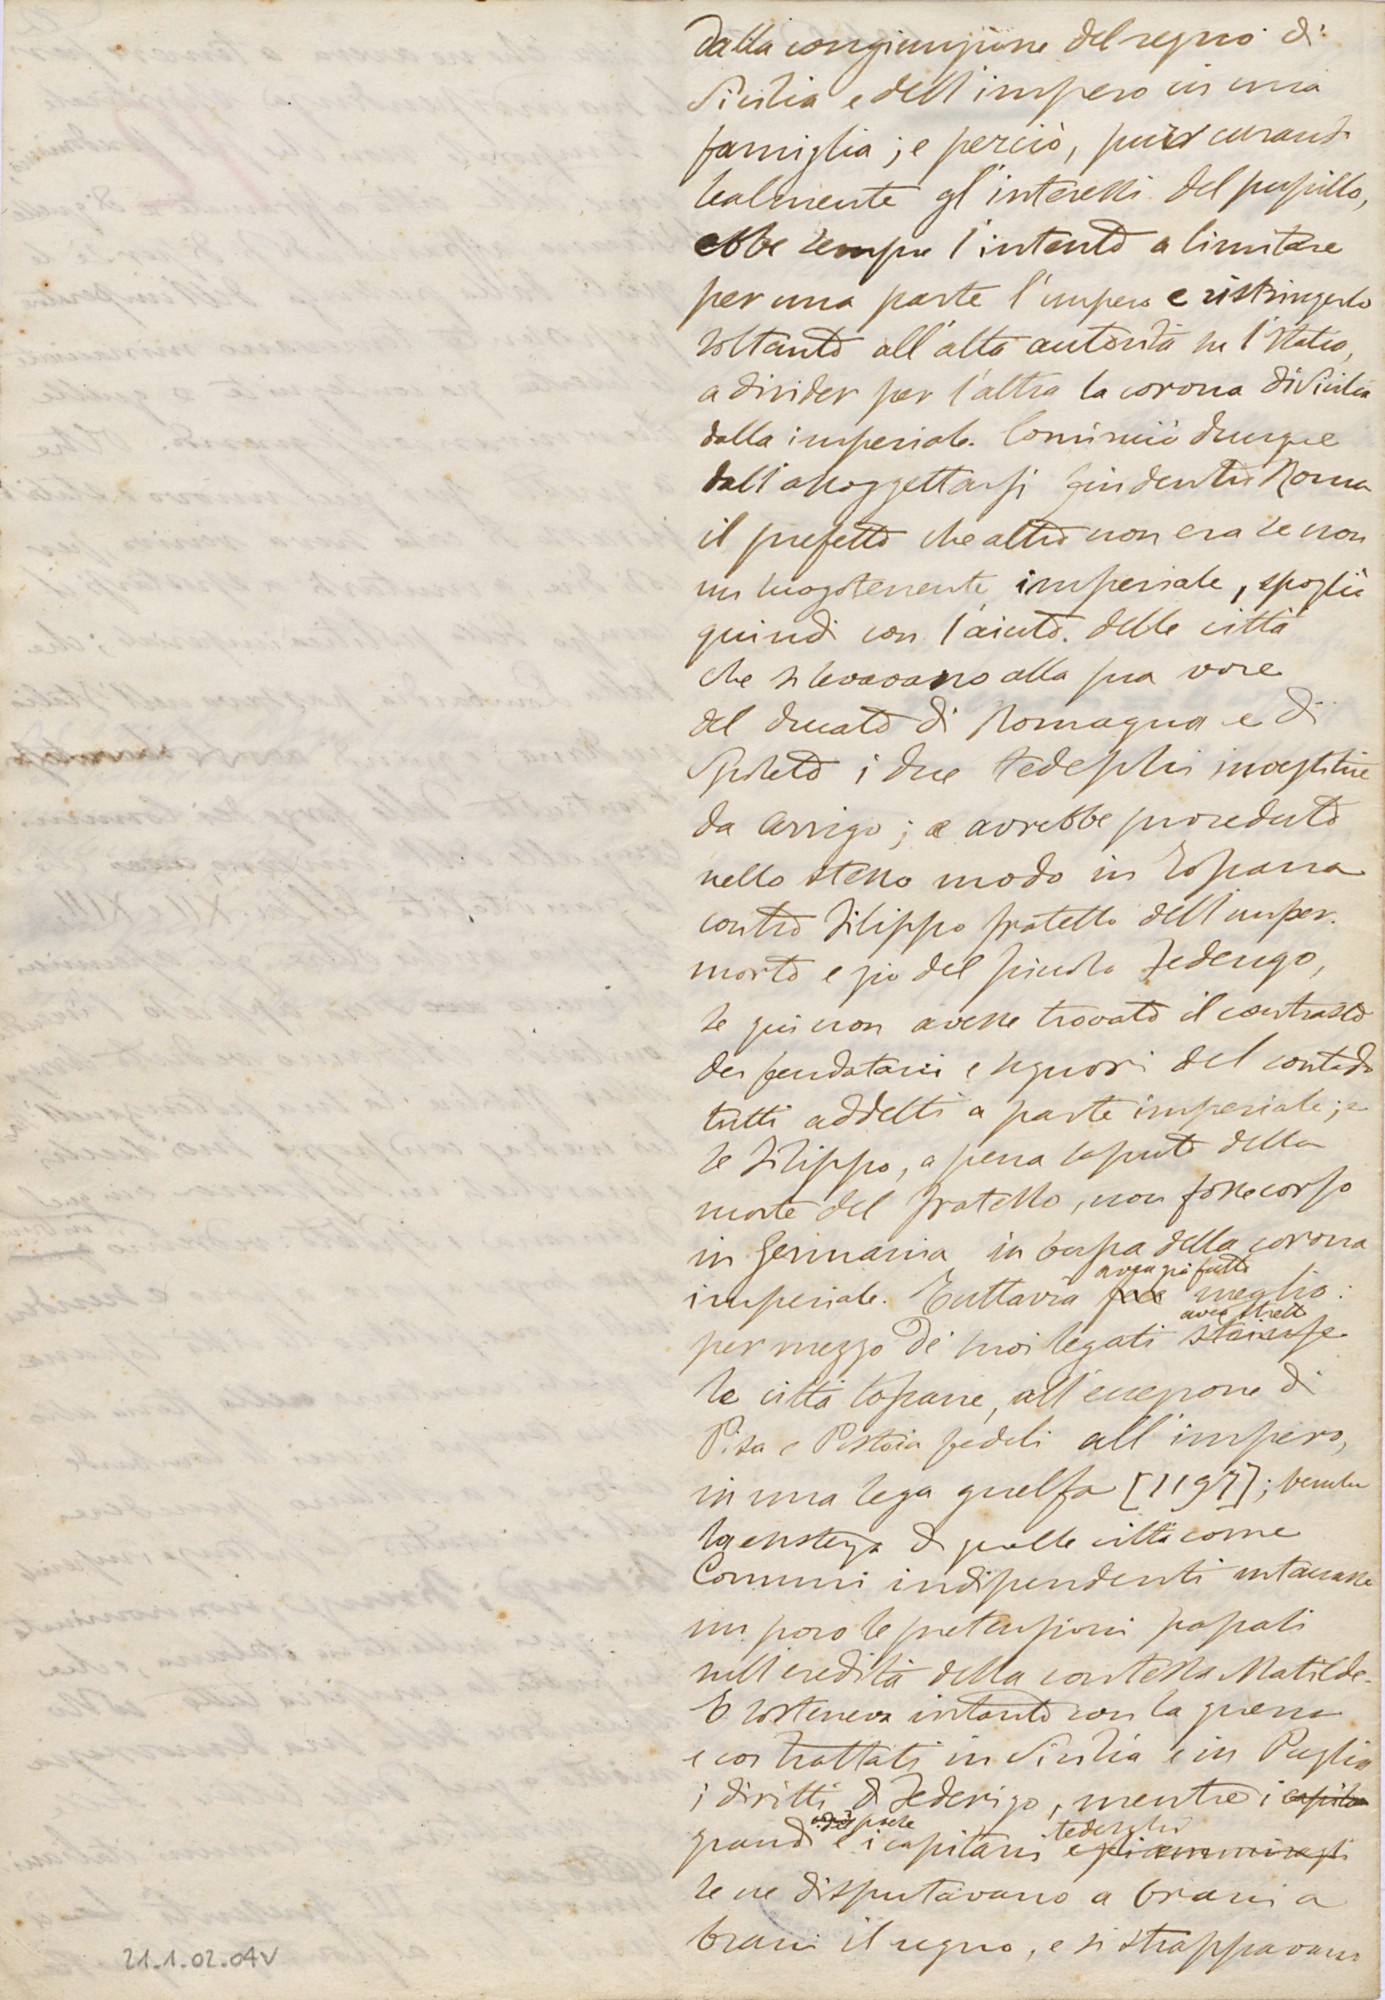 dalla congiunzione del regno di
Sicilia e dell'impero in una
famiglia; e perciò, pur curando
lealmente gl'interessi del pupillo,
ebbe sempre l'intento a limitare
per una parte l'impero e ristringerlo
soltanto all'alta autorità su l'Italia,
a divider per l'altra la corona di Sicilia
dalla imperiale. Cominciò dunque
dall'assoggettarsi fin dentro Roma
il prefetto che altro non era se non
un luogotenente imperiale, spogliò
quindi con l'aiuto delle città
che si levavano alla sua voce
del ducato di Romagna e di
Spoleto i due tedeschi investitine
da Arrigo; e avrebbe proceduto
nello stesso modo in Toscana
contro Filippo fratello dell'imper.
morto e zio del piccolo Federigo,
se qui non avesse trovato il contrasto
dei feudatari e signori del contado
tutti addetti a parte imperiale; e
se Filippo, a pena saputo della
morte del fratello, non fosse corso
in Germania in cerca della corona
avea già fatto
imperiale. Tuttavia fece meglio:
avea strette
per mezzo de' suoi legati strinse
le città toscane, all'eccezione di
Pisa e Pistoia fedeli all'impero,
in una lega guelfa [1197]; benché
la esistenza di quelle città come
Comuni indipendenti intaccasse
un poco le pretensioni papali
nell'eredità della contessa Matilde.
E sosteneva intanto con la guerra
e coi trattati in Sicilia e in Puglia
i diritti di Federigo, mentre i capita
tedeschi
grandi e i capitani e gli ammiragli
se ne disputavano a brani a
brani il regno, e si strappavano
21.1.02.04v